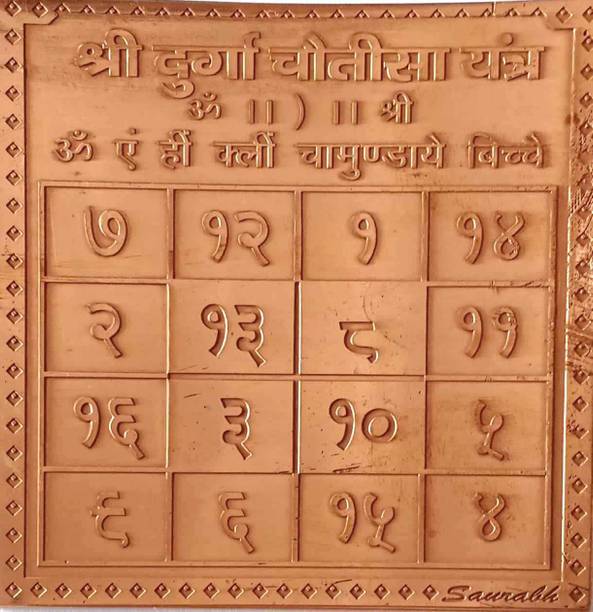 श्री दुर्गा चौतीसा यंत्र
ॐ ।। ) ।। श्री
ॐ एं हीं क्लीं चामुण्डाये बिच्चे
७ १२ १ १४
२ १३ ८ ११
१६ ३ १० ५
९ ६ १५ ४
Saurabh